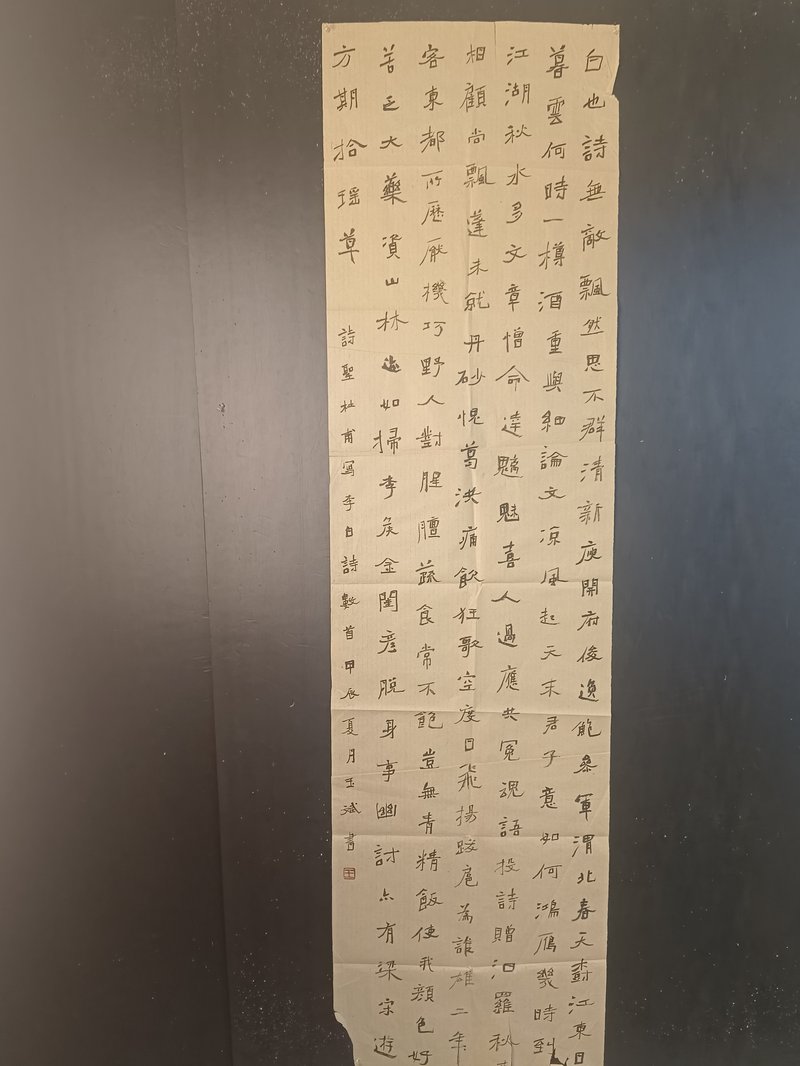 白也詩無敵飄然思不群清新庾開府俊逸鮑參軍渭北春天樹江東日
暮雲何時一樽酒重與細論文凉風起天末君子意如何鴻雁幾時到
江湖秋水多文章憎命達魑魅喜人過應共冤魂語投詩贈汨羅秋
相顧尚飄蓬未就丹砂愧葛洪痛飲狂歌空度日飛揚跋扈為誰雄二年
客東都所歷厭機巧野人對腥膻蔬食常不飽豈無青精飯使我顏色好
苦乏大藥資山林迹如掃李侯金閨彥脫身事幽討亦有梁宋遊
方期拾瑤草 詩聖杜甫寫李白詩數首甲辰夏月玉斌書
王